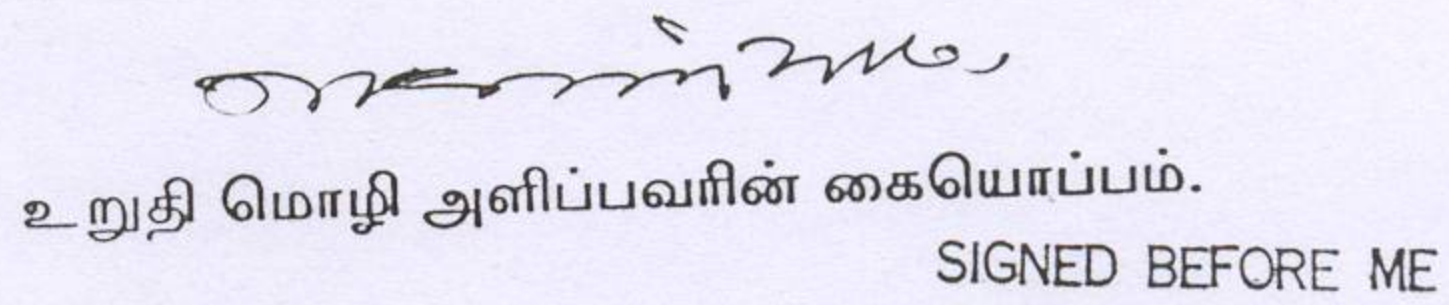 உறுதி மொழி அளிப்பவரின் கையொப்பம்.
SIGNED BEFORE ME